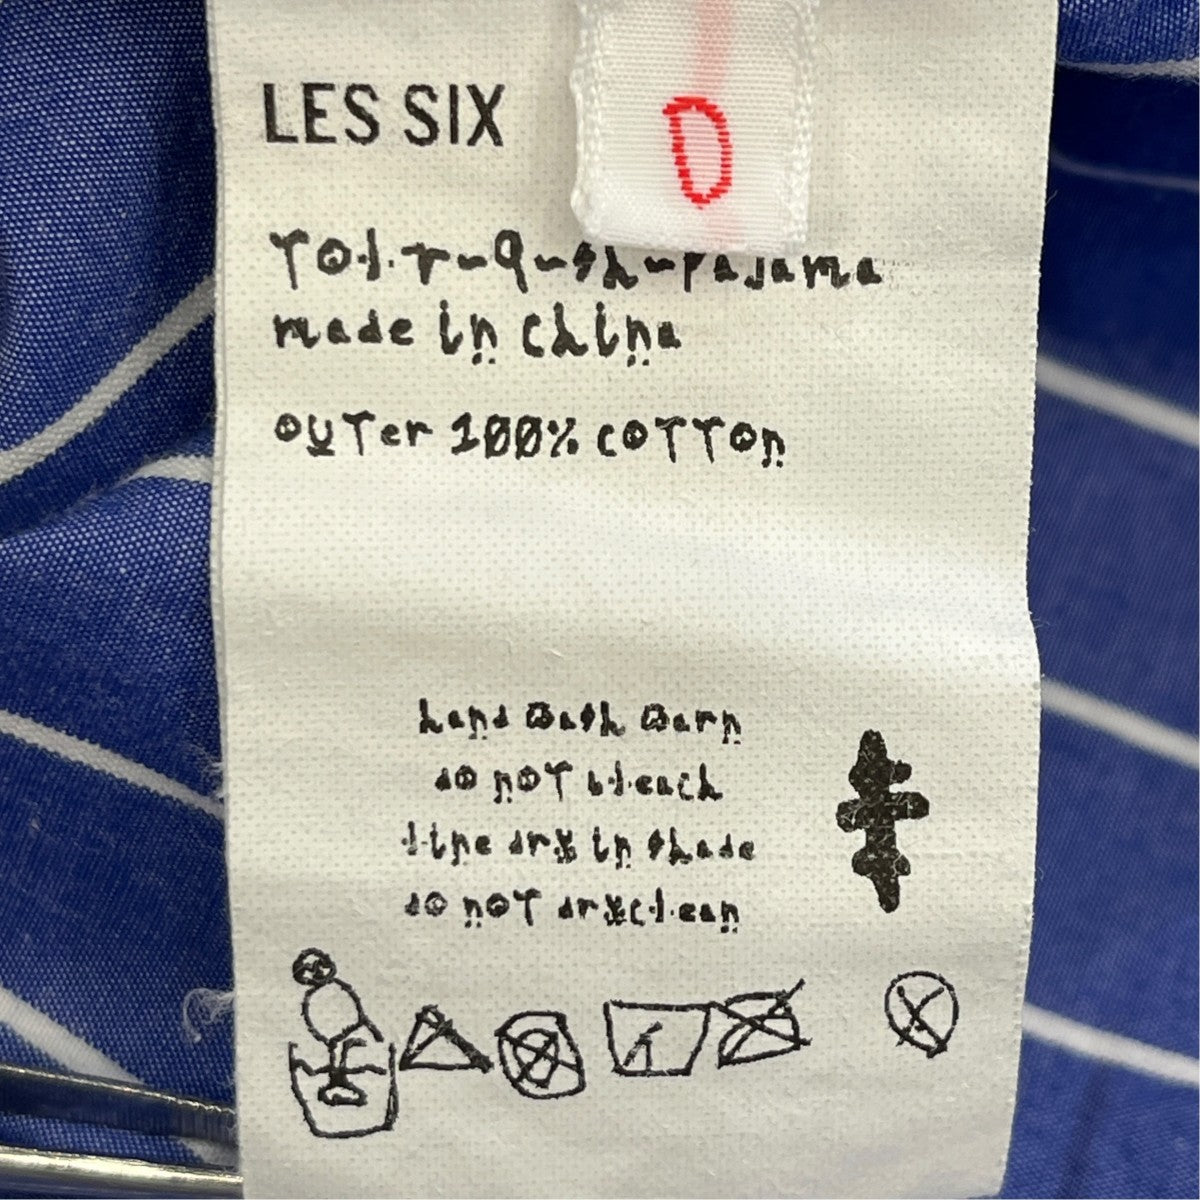 LES SIX
0
made in china
outer 100% cotton
hand wash warm
do not bleach
line dry in shade
do not dryclean